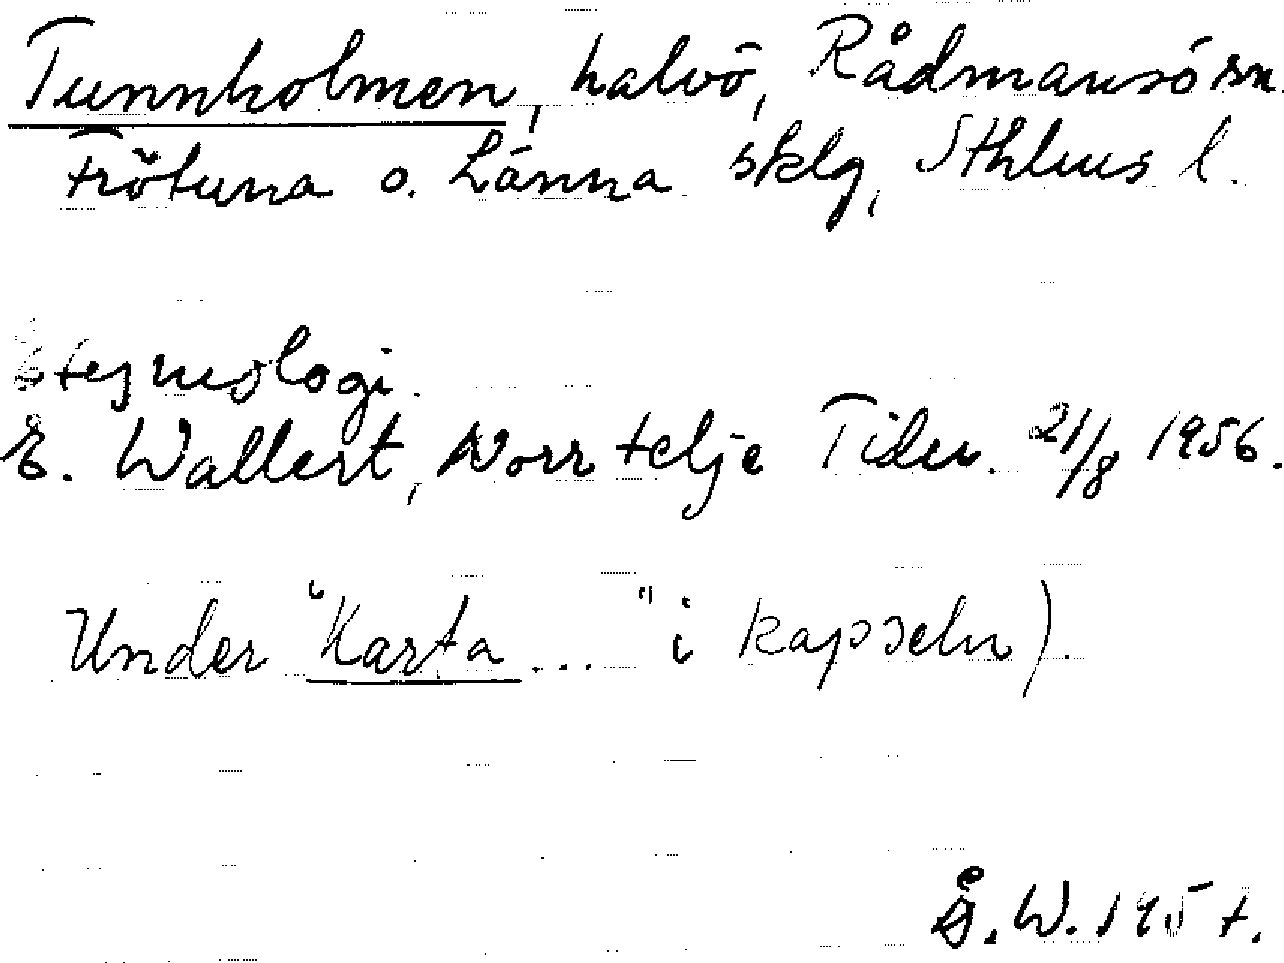 Tunnholmen, halvö, Rådmansö sn.
Frötuna o. Länna sklg, Sthlms l.
Etymologi.
E. Wallert, Norrtelje Tidn. 21/8 1956.
Under "Karta ..." i kapseln).
Å. W. 1957.